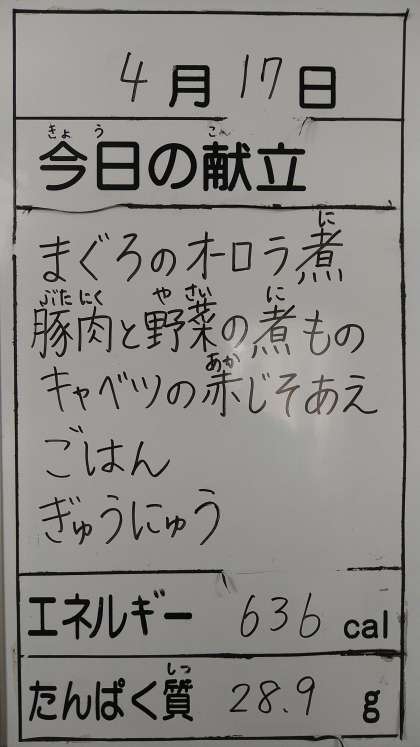 4月17日
きょう こん
今日の献立
に
まぐろのオーロラ煮
ぶたにく やさい に
豚肉と野菜の煮もの
あか
キャベツの赤じそあえ
ごはん
ぎゅうにゅう
エネルギー 636 cal
しつ
たんぱく質 28.9 g